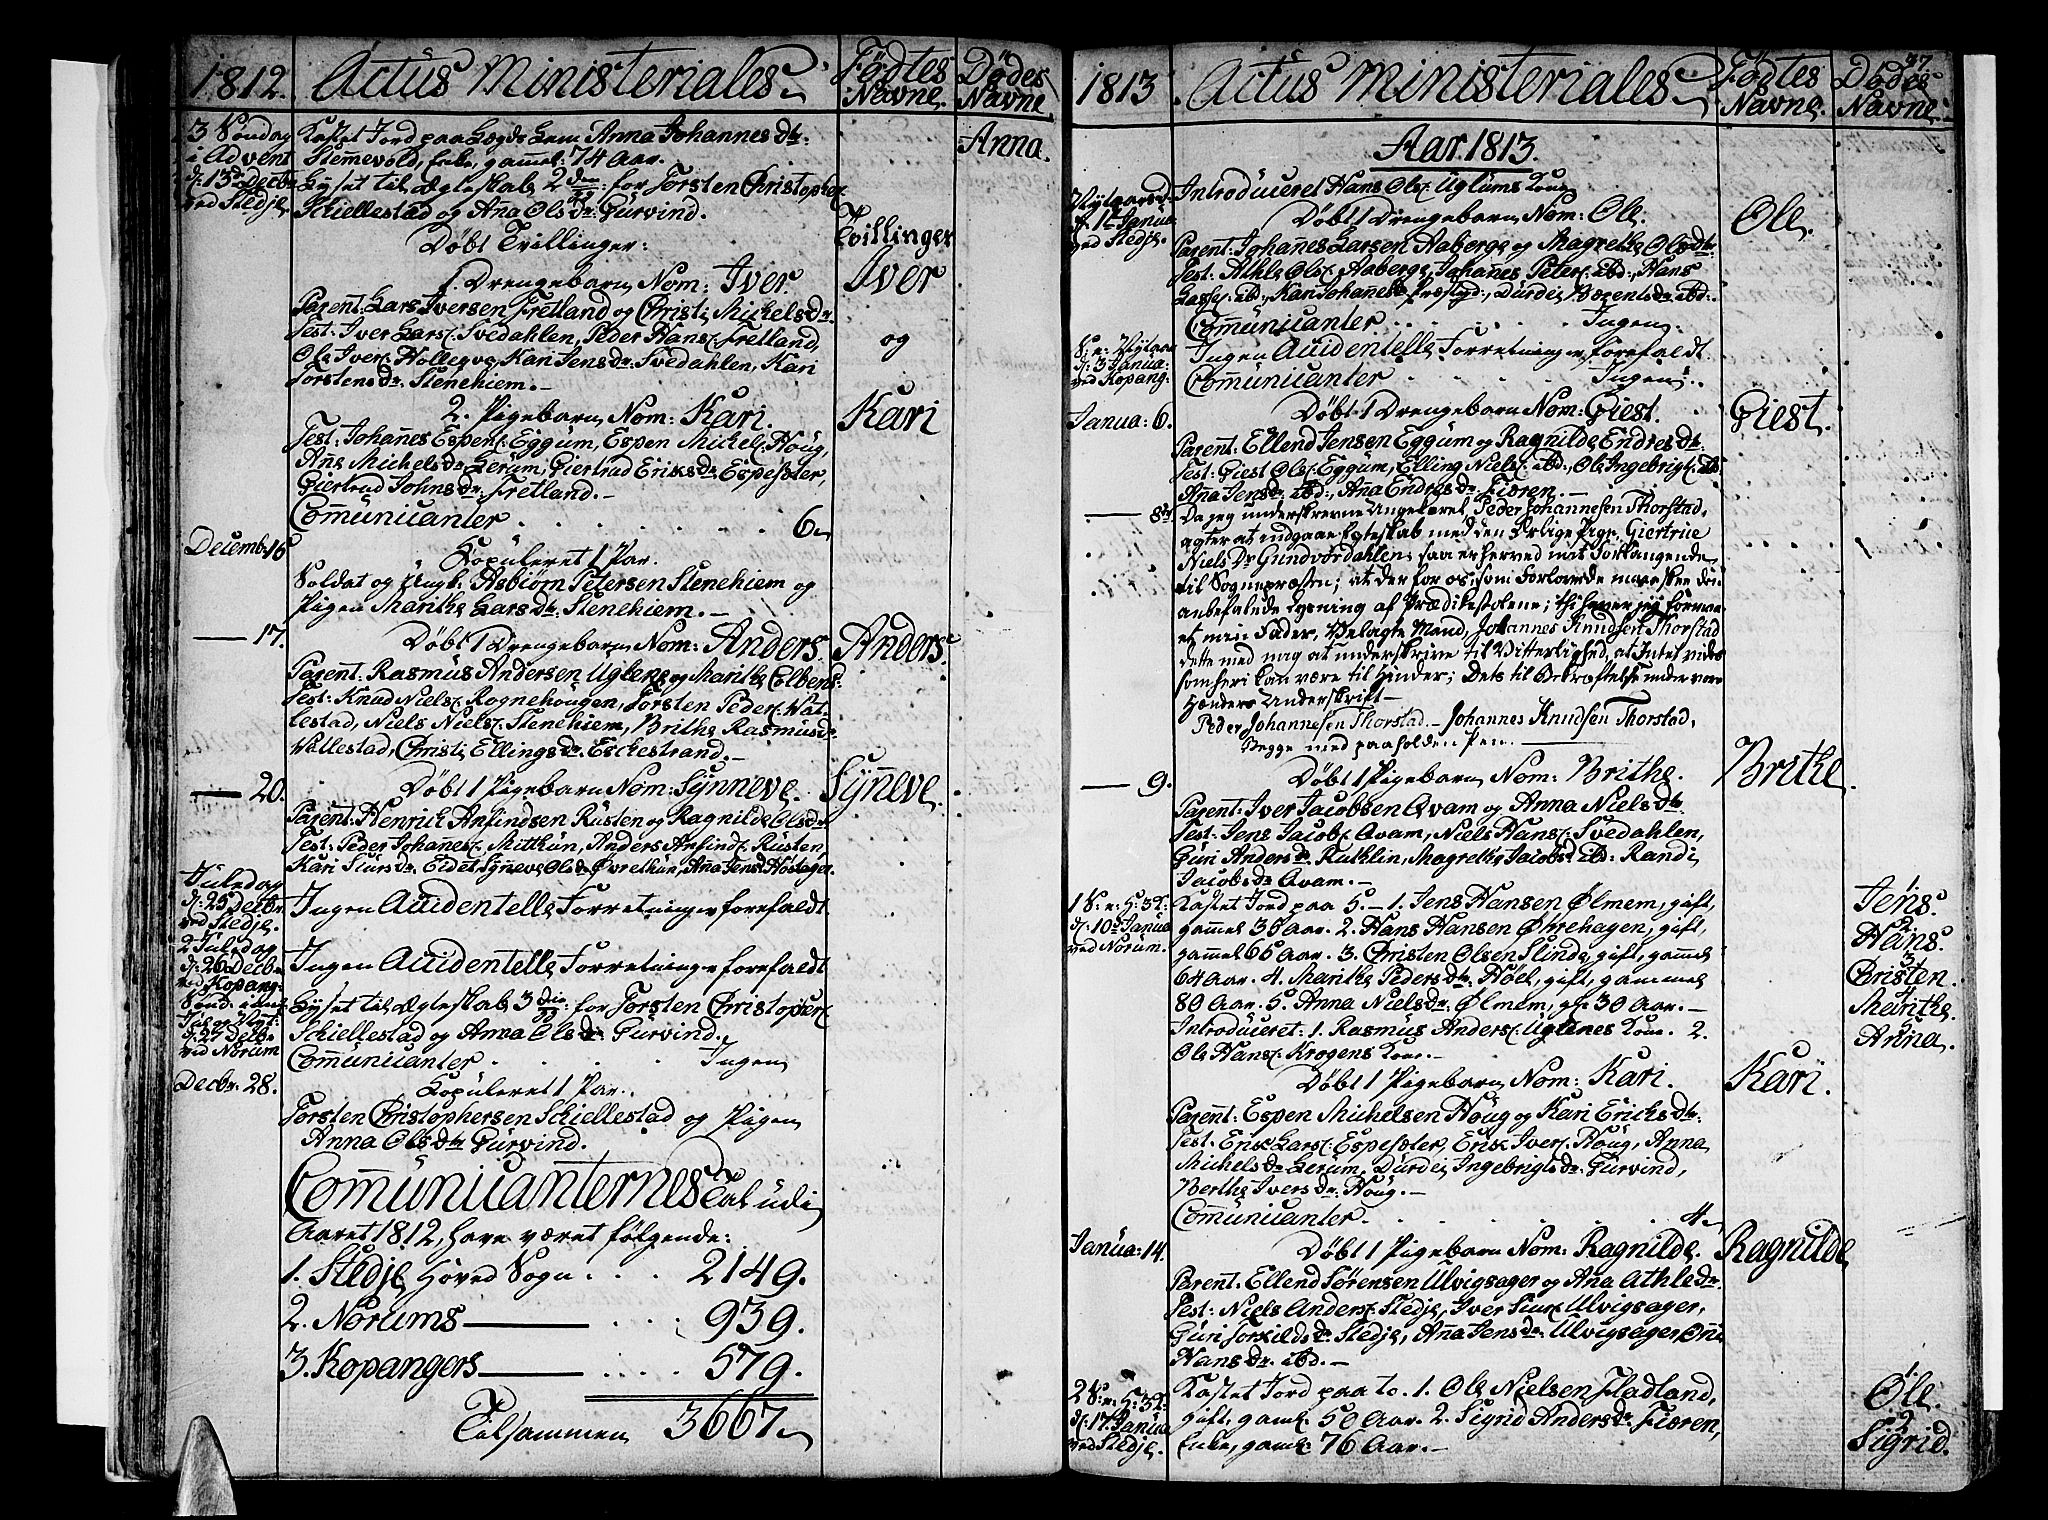 1812. Actus Ministeriales Fødtes Navne. Dødes Navne
3 Søndag i Advent d: 13de Decbr. ved Stedje.
Kastet Jord paa Lægds Lem Anna Johannes Dtr.
Stemevold, Enke, gammel: 74 Aar.
Anna.
Lyset til Ægteskab 2den for Torsten Christophers:
Schiellestad og Anna Ols Dr. Gurvind.
Døbt Tvillinger:
Tvillinger
1. Drengebarn Nom: Iver
Iver
Parent: Lars Iversen Fretland og Christi Michels dr.
Test: Iver Lars: Svedahlen, Peder Hans: Fretland,
og
Ole Ivers: Hollegve, Kari Jens dr. Svedahlen, Kari
Torstens dr. Stenehiem. -
2. Pigebarn Nom: Kari.
Kari
Test: Johannes Espen: Eggum, Espen Michels: Houg,
Ane Michels dr. Lerum, Giertrud Eriks dr. Espesøter,
Giertrud Johns dr. Fretland. -
Communicanter . . . . . . 6
Decemb: 16
Kopuleret 1 Par.
Soldat og Ungk: Asbiørn Petersen Stenehiem og
Pigen Marithe Lars dr. Stenehiem. -
— 17.
Døbt 1 Drengebarn Nom: Anders.
Anders.
Parent: Rasmus Andersen Uglene og Marithe Colbens:
Test: Knud Niels: Rognehougen, Torsten Peder: Vat-
lestad, Niels Niels: Stenehiem, Brithe Rasmus dr.
Vallestad, Christi Ellings dr. Eschestrand. -
— 20.
Døbt 1 Pigebarn Nom: Synneve.
Synneve.
Parent: Henrich Anfindsen Rusten og Ragnilde Ols dr.
Test: Peder Johannes: Mitthun, Anders Anfind: Rusten,
Kari Siurs dr. Eidet, Synneve Ols dr. Øvrethun, Anna Jens: Høstager.
Juledag d: 25 Decbr. ved Stedje.
Ingen Accidentelle Forretninger forefaldt
2 Juledag d: 26 Decbr. ved Kopang:
Ingen Accidentelle Forretninger forefaldt
d: 27 Decbr. ved Norum
Lyset til Ægteskab 3die for Torsten Christopher:
Schiellestad og Anna Ols dr. Gurvind.
Communicanter . . . . Ingen
Decbr. 28.
Kopuleret 1 Par.
Torsten Christophersen Schiellestad og Pigen
Anna Ols dtr. Gurvind.
Communicanternes Tal udi
Aaret 1812, have været følgende:
1. Stedje Hoved Sogn . . . . 2149.
2. Norums — . . . . 939.
3. Kopangers — . . . . 579.
Tilsammen 3667.
1813. Actus Ministeriales Fødtes Navne. Dødes Navne.
Aar. 1813.
Nytaarsd: d: 1te Janua: ved Stedje.
Introduceret Hans Ols: Uglums Kone
Døbt 1 Drengebarn Nom: Ole.
Ole.
Parent: Johanes Larsen Aaberge og Magrethe Ols dtr.
Test: Athle Ols: Aaberge, Johanes Peter: ibd:, Hans
Lasse: ibd:, Kari Johanes dr. Præstgd:, Durdei Bærents dr. ibd:
Communicanter . . . . . Ingen.
S. e: Nytaar d: 3 Janua: ved Kopang:
Ingen Accidentelle Forretninger forefaldt.
Communicanter . . . . Ingen.
Janua: 6.
Døbt 1 Drengebarn Nom: Giest.
Giest.
Parent: Ellend Jensen Eggum og Ragnilde Endres dtr.
Test: Giest Ols: Eggum, Elling Niels: ibd:, Ole Ingebrigt: ib
Ana Jens dr. ibd:, Ana Endres dr. Fiæren. -
— 8de
Da jeg underskrevne Ungekarl Peder Johannesen Thorstad,
agter at indgaae Egteskab med den Ærlige Pige Giertrue
Niels Dr. Gundvordahlen, saa er herved mit Forlangende
til Sognepræsten; at der for os, som Forlovede maae skee den
anbefalede Lysning af Prædikestolene; thi haver jeg formaa-
et min Fader, Velagte Mand, Johannes Knudsen Thorstad
dette med mig at underskrive til Vitterlighed, at Intet vides
som heri kan være til Hinder; Dets til Bekræftelse under vore
Hænders Underskrift -
Peder Johannesen Thorstad. - Johannes Knudsen Thorstad,
Begge med paaholden Pen. —
— 9.
Døbt 1 Pigebarn Nom: Brithe.
Brithe.
Parent: Iver Jacobsen Qvam og Anna Niels dtr.
Test: Jens Jacob: Qvam, Niels Hans: Svedahlen,
Guri Anders dr. Ruthlin, Magrethe Jacobs dr. ibd: Randi
Jacobs dr. Qvam. -
1 S: e: H: 3K: d: 10de Janua: ved Norum.
Kastet Jord paa 5. - 1. Jens Hansen Ølmem, gift,
gammel 36 Aar. 2. Hans Hansen Øhrehagen, gift,
gammel 66 Aar. 3. Christen Olsen Slinde, gift, gammel
64 Aar. 4. Marithe Peders dtr. Høl, gift, gammel
80 Aar. 5. Anna Niels dr. Ølmem, gl: 30 Aar. -
1 Jens.
2 Hans.
3 Christen.
4 Marithe.
Anna.
Introduceret: 1. Rasmus Anders: Uglenes Kone. 2.
Ole Hans: Krogens Kone. -
Døbt 1 Pigebarn Nom: Kari.
Kari.
Parent: Espen Michelsen Houg og Kari Erichs dtr.
Test: Erik Lars: Espesøter, Erik Iver: Houg, Anna
Michels dr. Lerum, Durdei Ingebrigts dr. Gurvind,
Berthe Ivers dr. Houg. -
Communicanter. . . . . . 4
Janua: 14.
Døbt 1 Pigebarn Nom: Ragnilde.
Ragnilde
Parent: Ellend Sørensen Ulvigsager og Ana Athle dr.
Test: Niels Anders: Stedje, Iver Siur: Ulvigsager,
Guri Torkilds dr. Stedje, Anna Jens dr. Ulvigsager, Oni
Hans dr. ibd. -
2 S: e: H: 3K: d: 17. Janua ved Stedje.
Kastet Jord paa to. 1. Ole Nielsen Fladland,
gift, gaml: 50 Aar. 2. Sigrid Anders dr. Fiæren,
Enke, gaml: 76 Aar. -
1 Ole.
2 Sigrid.